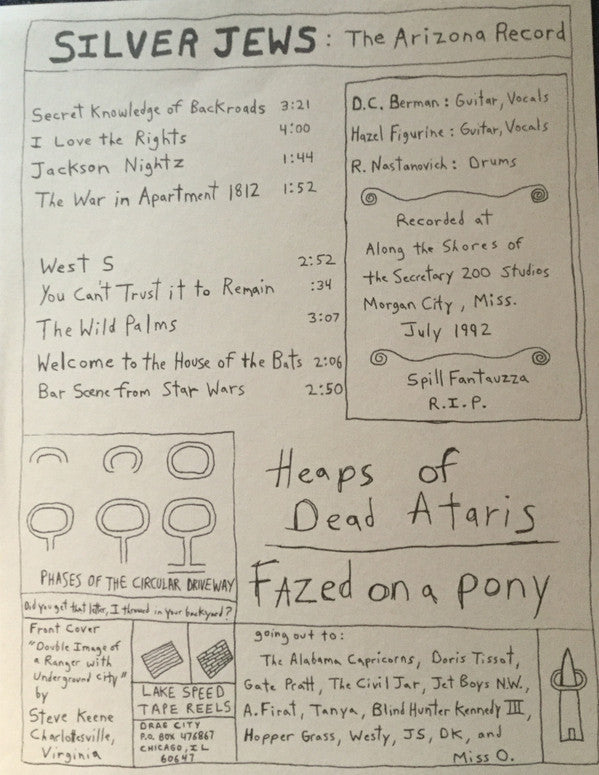 SILVER JEWS: The Arizona Record
Secret Knowledge of Backroads 3:21
I Love the Rights 4:00
Jackson Nightz 1:44
The War in Apartment 1812 1:52
West S 2:52
You Can't Trust it to Remain :34
The Wild Palms 3:07
Welcome to the House of the Bats 2:06
Bar Scene from Star Wars 2:50
D.C. Berman: Guitar, Vocals
Hazel Figurine: Guitar, Vocals
R. Nastanovich: Drums
Recorded at
Along the Shores of
the Secretary 200 Studios
Morgan City, Miss.
July 1992
Spill Fantauzza
R.I.P.
PHASES OF THE CIRCULAR DRIVEWAY
Heaps of
Dead Ataris
FAZed on a pony
Did you get that letter, I throwed in your backyard?
Front Cover
"Double Image of
a Ranger with
Underground City"
by
Steve Keene
Charlottesville,
Virginia
LAKE SPEED
TAPE REELS
DRAG CITY
P.O. BOX 476867
CHICAGO, IL
60647
going out to:
The Alabama Capricorns, Doris Tissot,
Gate Pratt, The Civil Jar, Jet Boys N.W.,
A. Firat, Tanya, Blind Hunter Kennedy III,
Hopper Grass, Westy, JS, DK, and
Miss O.